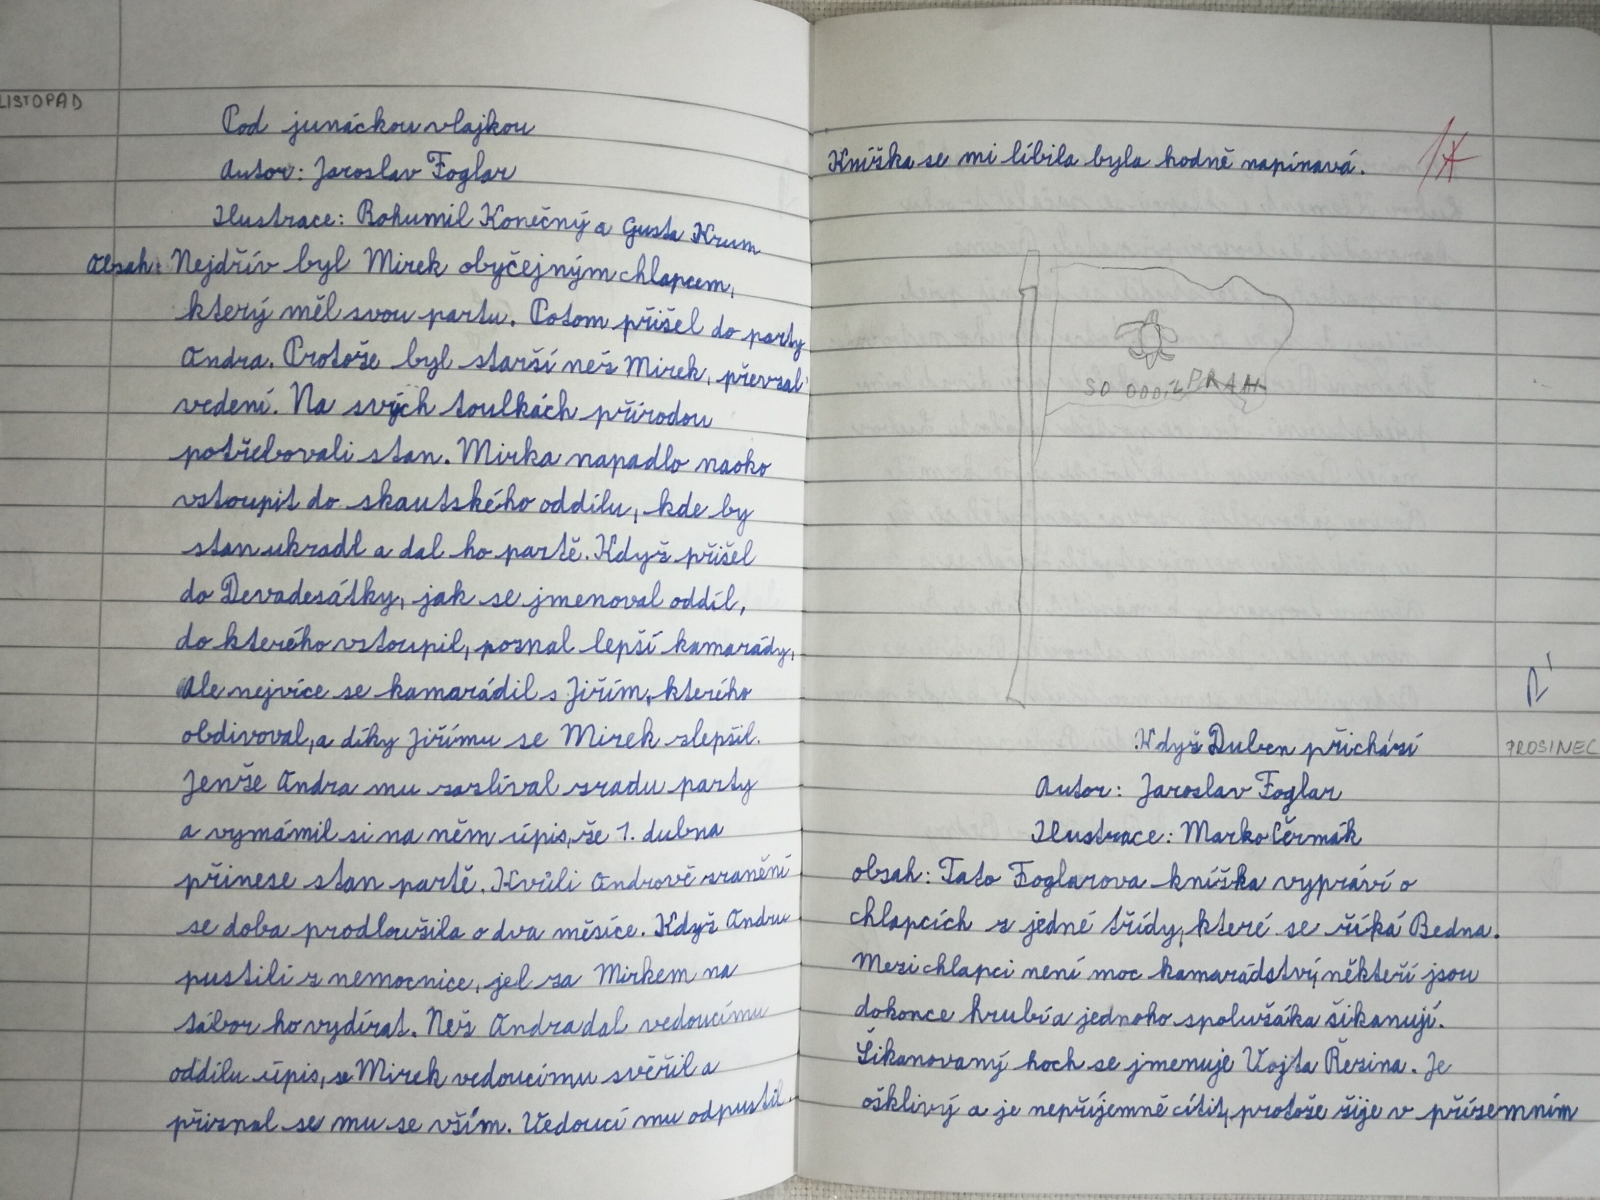 LISTOPAD
Pod junáckou vlajkou
Autor: Jaroslav Foglar
Ilustrace: Bohumil Konečný a Gusta Krum
obsah: Nejdřív byl Mirek obyčejným chlapcem,
který měl svou partu. Potom přišel do party
Andra. Protože byl starší než Mirek, převzal
vedení. Na svých toulkách přírodou
potřebovali stan. Mirka napadlo naoko
vstoupit do skautského oddílu, kde by
stan ukradl a dal ho partě. Když přišel
do Devadesátky, jak se jmenoval oddíl,
do kterého vstoupil, poznal lepší kamarády,
Ale nejvíce se kamarádil s Jiřím, kterého
obdivoval, a díky Jiřímu se Mirek zlepšil.
Jenže Andra mu zazlíval zradu party
a vymámil si na něm úpis, že 1. dubna
přinese stan partě. Kvůli Andrově zranění
se doba prodloužila o dva měsíce. Když Andru
pustili z nemocnice, jel za Mirkem na
tábor ho vydírat. Než Andra dal vedoucímu
oddílu úpis, se Mirek vedoucímu svěřil a
přiznal se mu se vším. Vedoucí mu odpustil.
Knížka se mi líbila byla hodně napínavá.
1*
Když Duben přichází
PROSINEC
Autor: Jaroslav Foglar
Ilustrace: Marko Čermák
obsah: Tato Foglarova knížka vypráví o
chlapcích z jedné třídy, které se říká Bedna.
Mezi chlapci není moc kamarádství, někteří jsou
dokonce hrubí a jednoho spolužáka šikanují.
Šikanovaný hoch se jmenuje Vojta Řezina. Je
ošklivý a je nepříjemně cítit, protože žije v přízemním